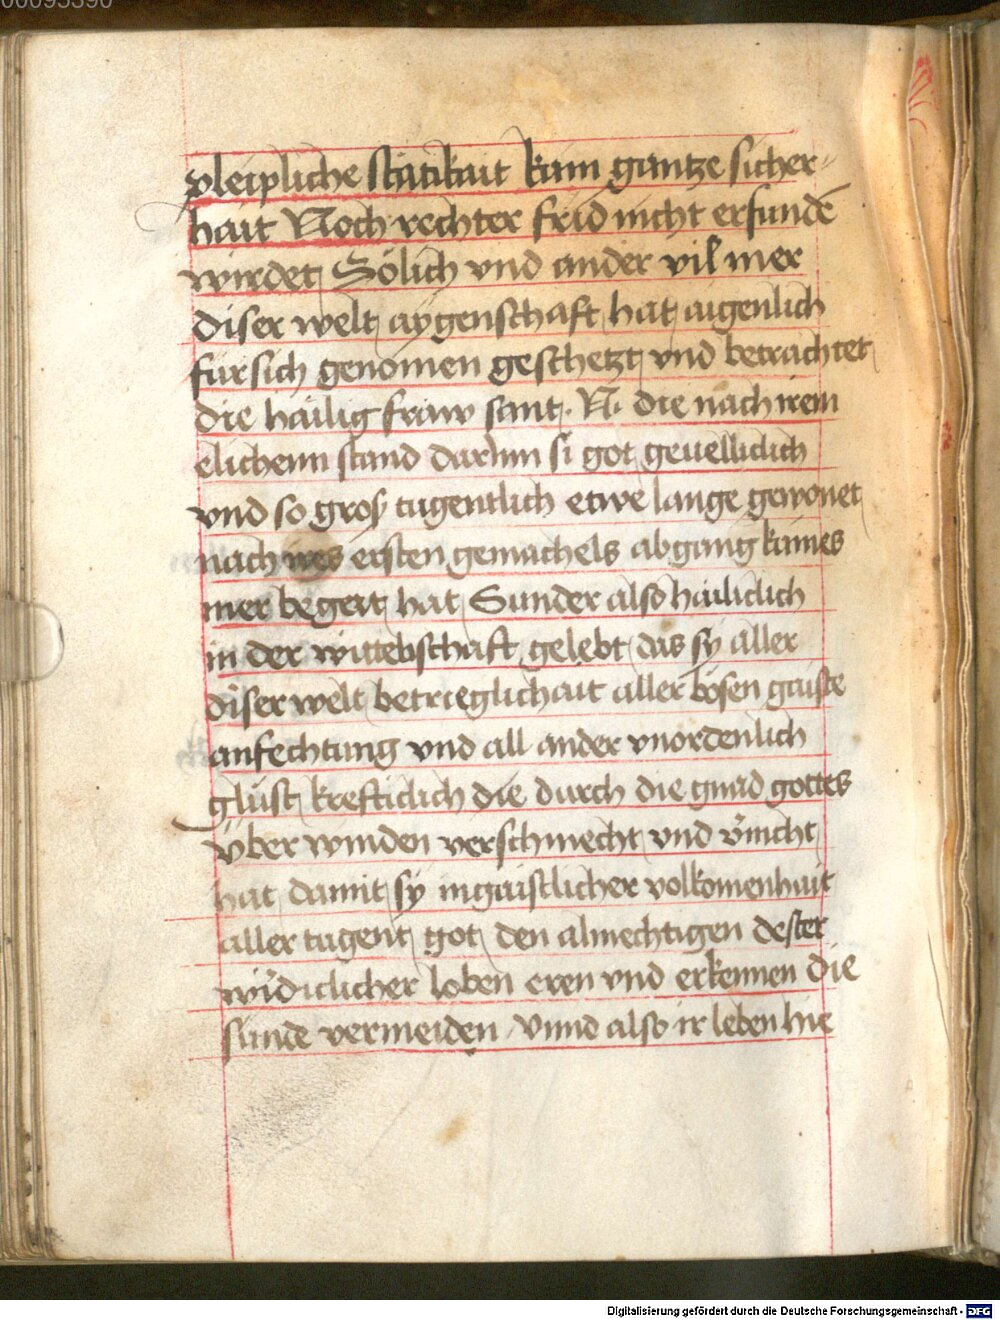 00095390
pleipliche stätikait kain gantze sicher-
hait Noch rechter frid nicht erfundē
wirdet Sölich vnd ander vil mer
diser welt aygenschaft hat aigenlich
für sich genomen geschetzt vnd betrachtet
die hailig fraw sant · N · die nach irem
elichenn stand darinn si got geuelliclich
vnd so gros tugentlich etwe lange gewonet
nach ires ersten gemachels abgang kaines
mer begert hat Sunder also hailiclich
in der wittebschaft gelebt das sy aller
diser welt betrieglichait aller bösen gaiste
anfechtung vnd all ander vnordenlich
glüst krefticlich die durch die gnad gottes
Über winden verschmecht vnd v̄nicht
hat damit sy in gaistlicher volkomenhait
aller tugent got den almechtigen dester
wirdiclicher loben eren vnd erkennen die
sunde vermeiden Vnnd also ir leben hie
Digitalisierung gefördert durch die Deutsche Forschungsgemeinschaft - DFG